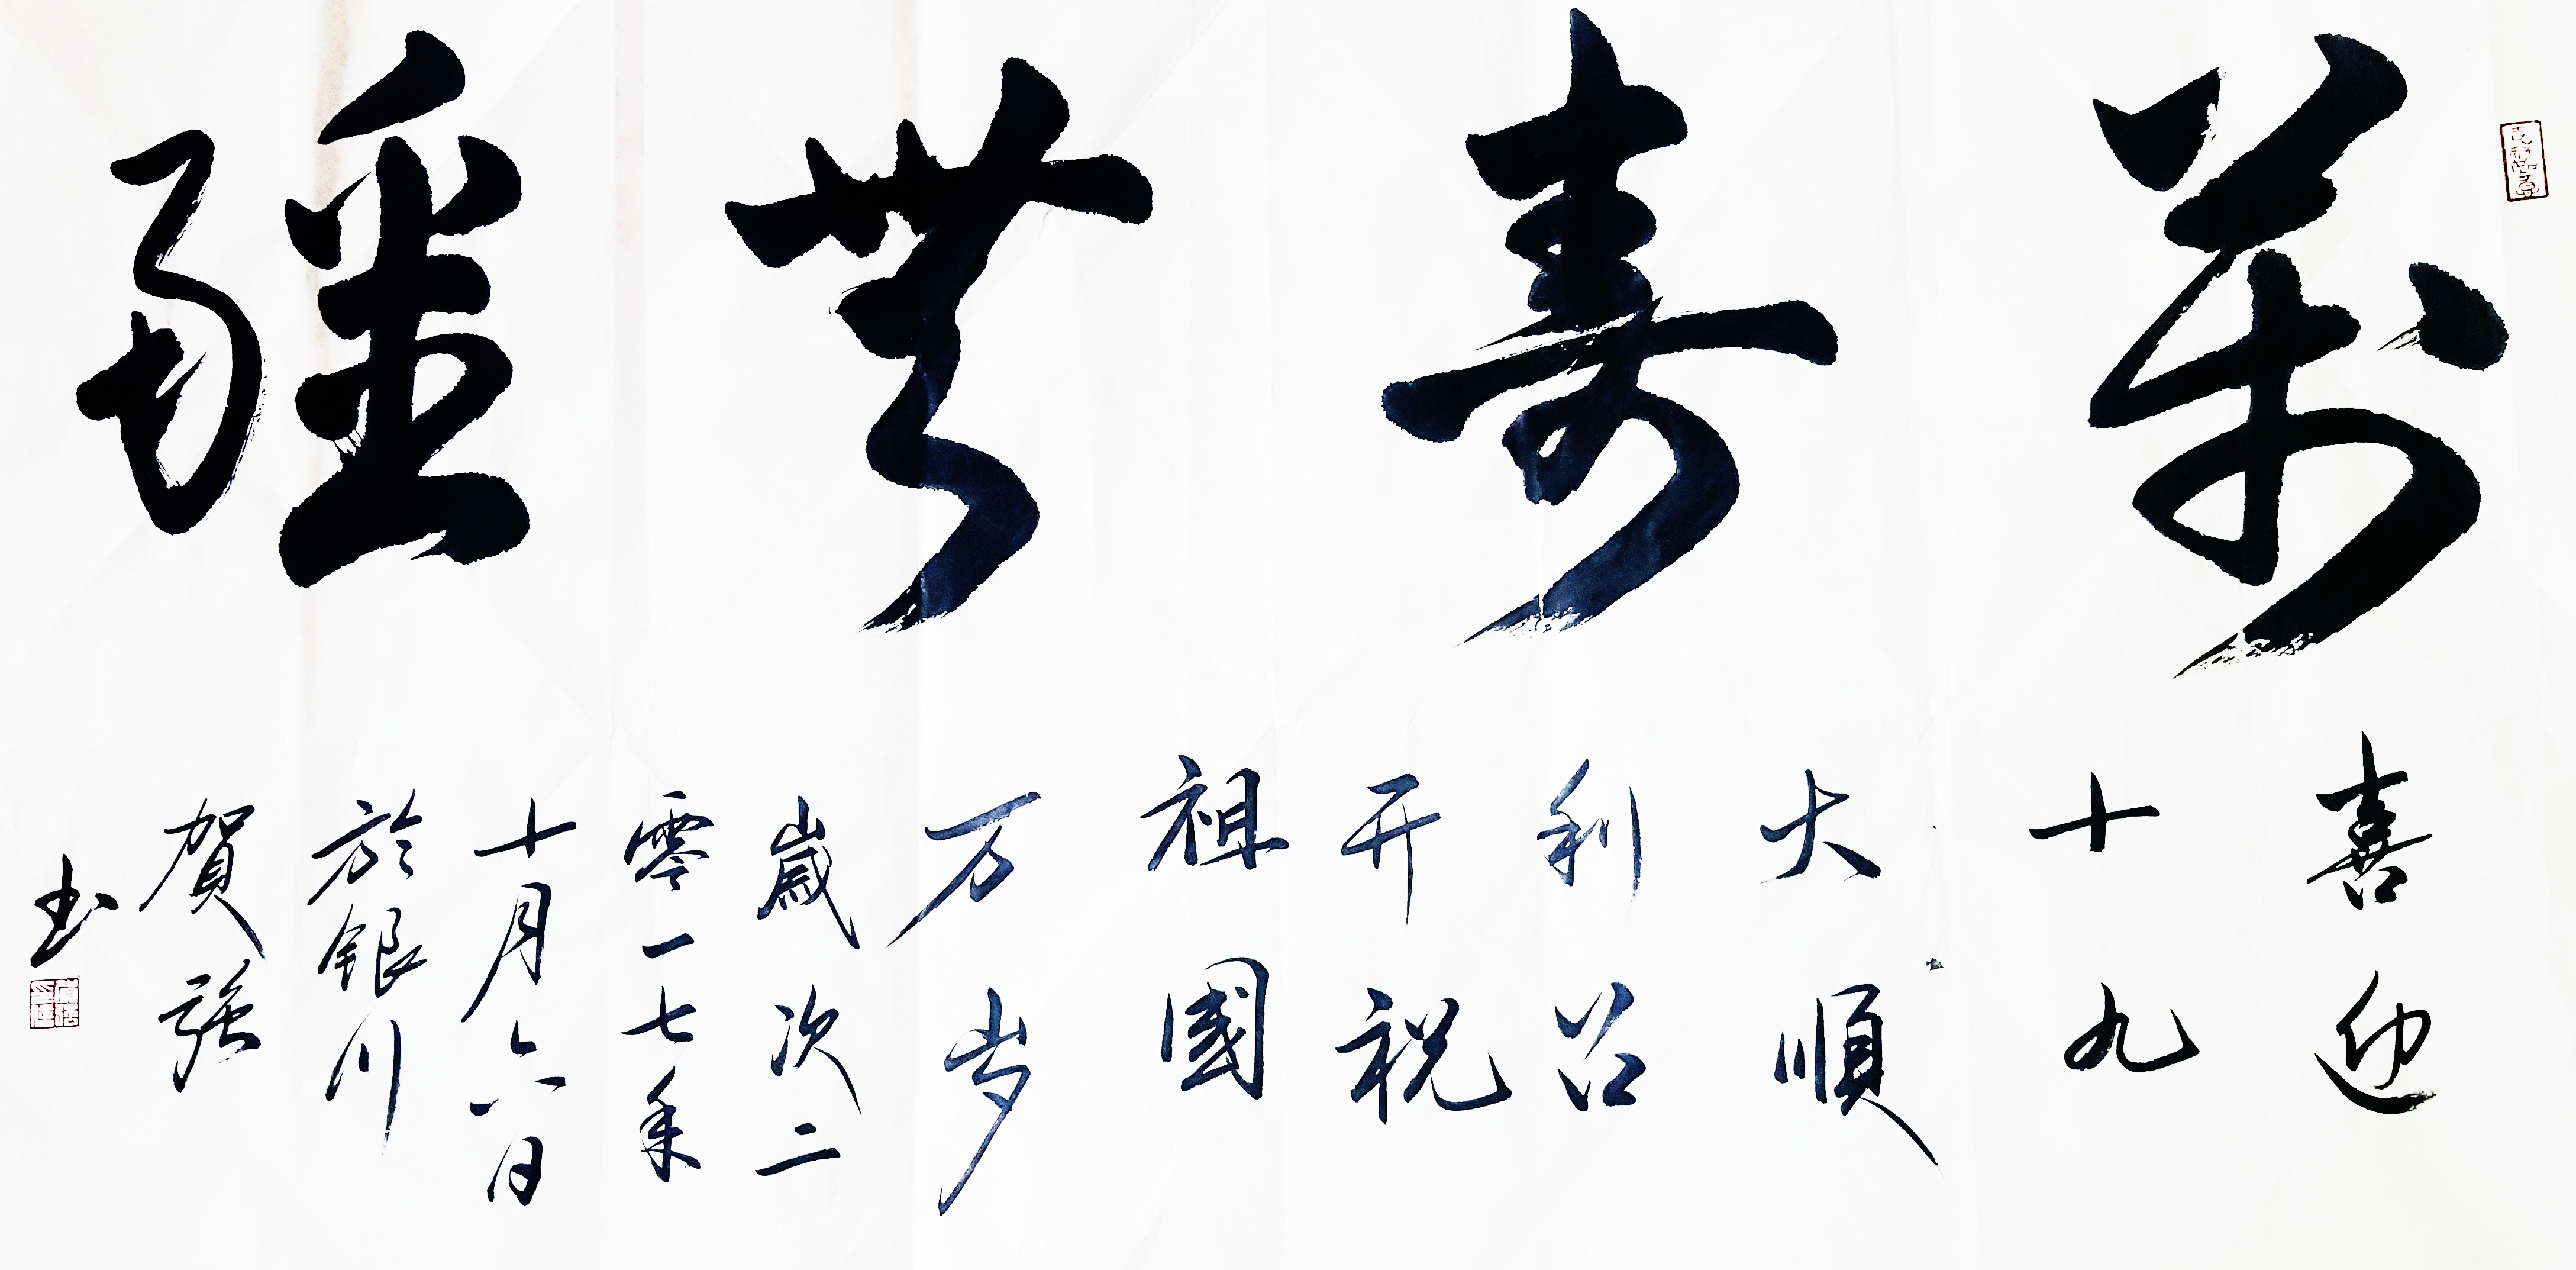 萬壽無疆
喜迎
十九
大順
利召
开祝
祖國
万岁
歲次二
零一七年
十月六日
於銀川
賀強
书